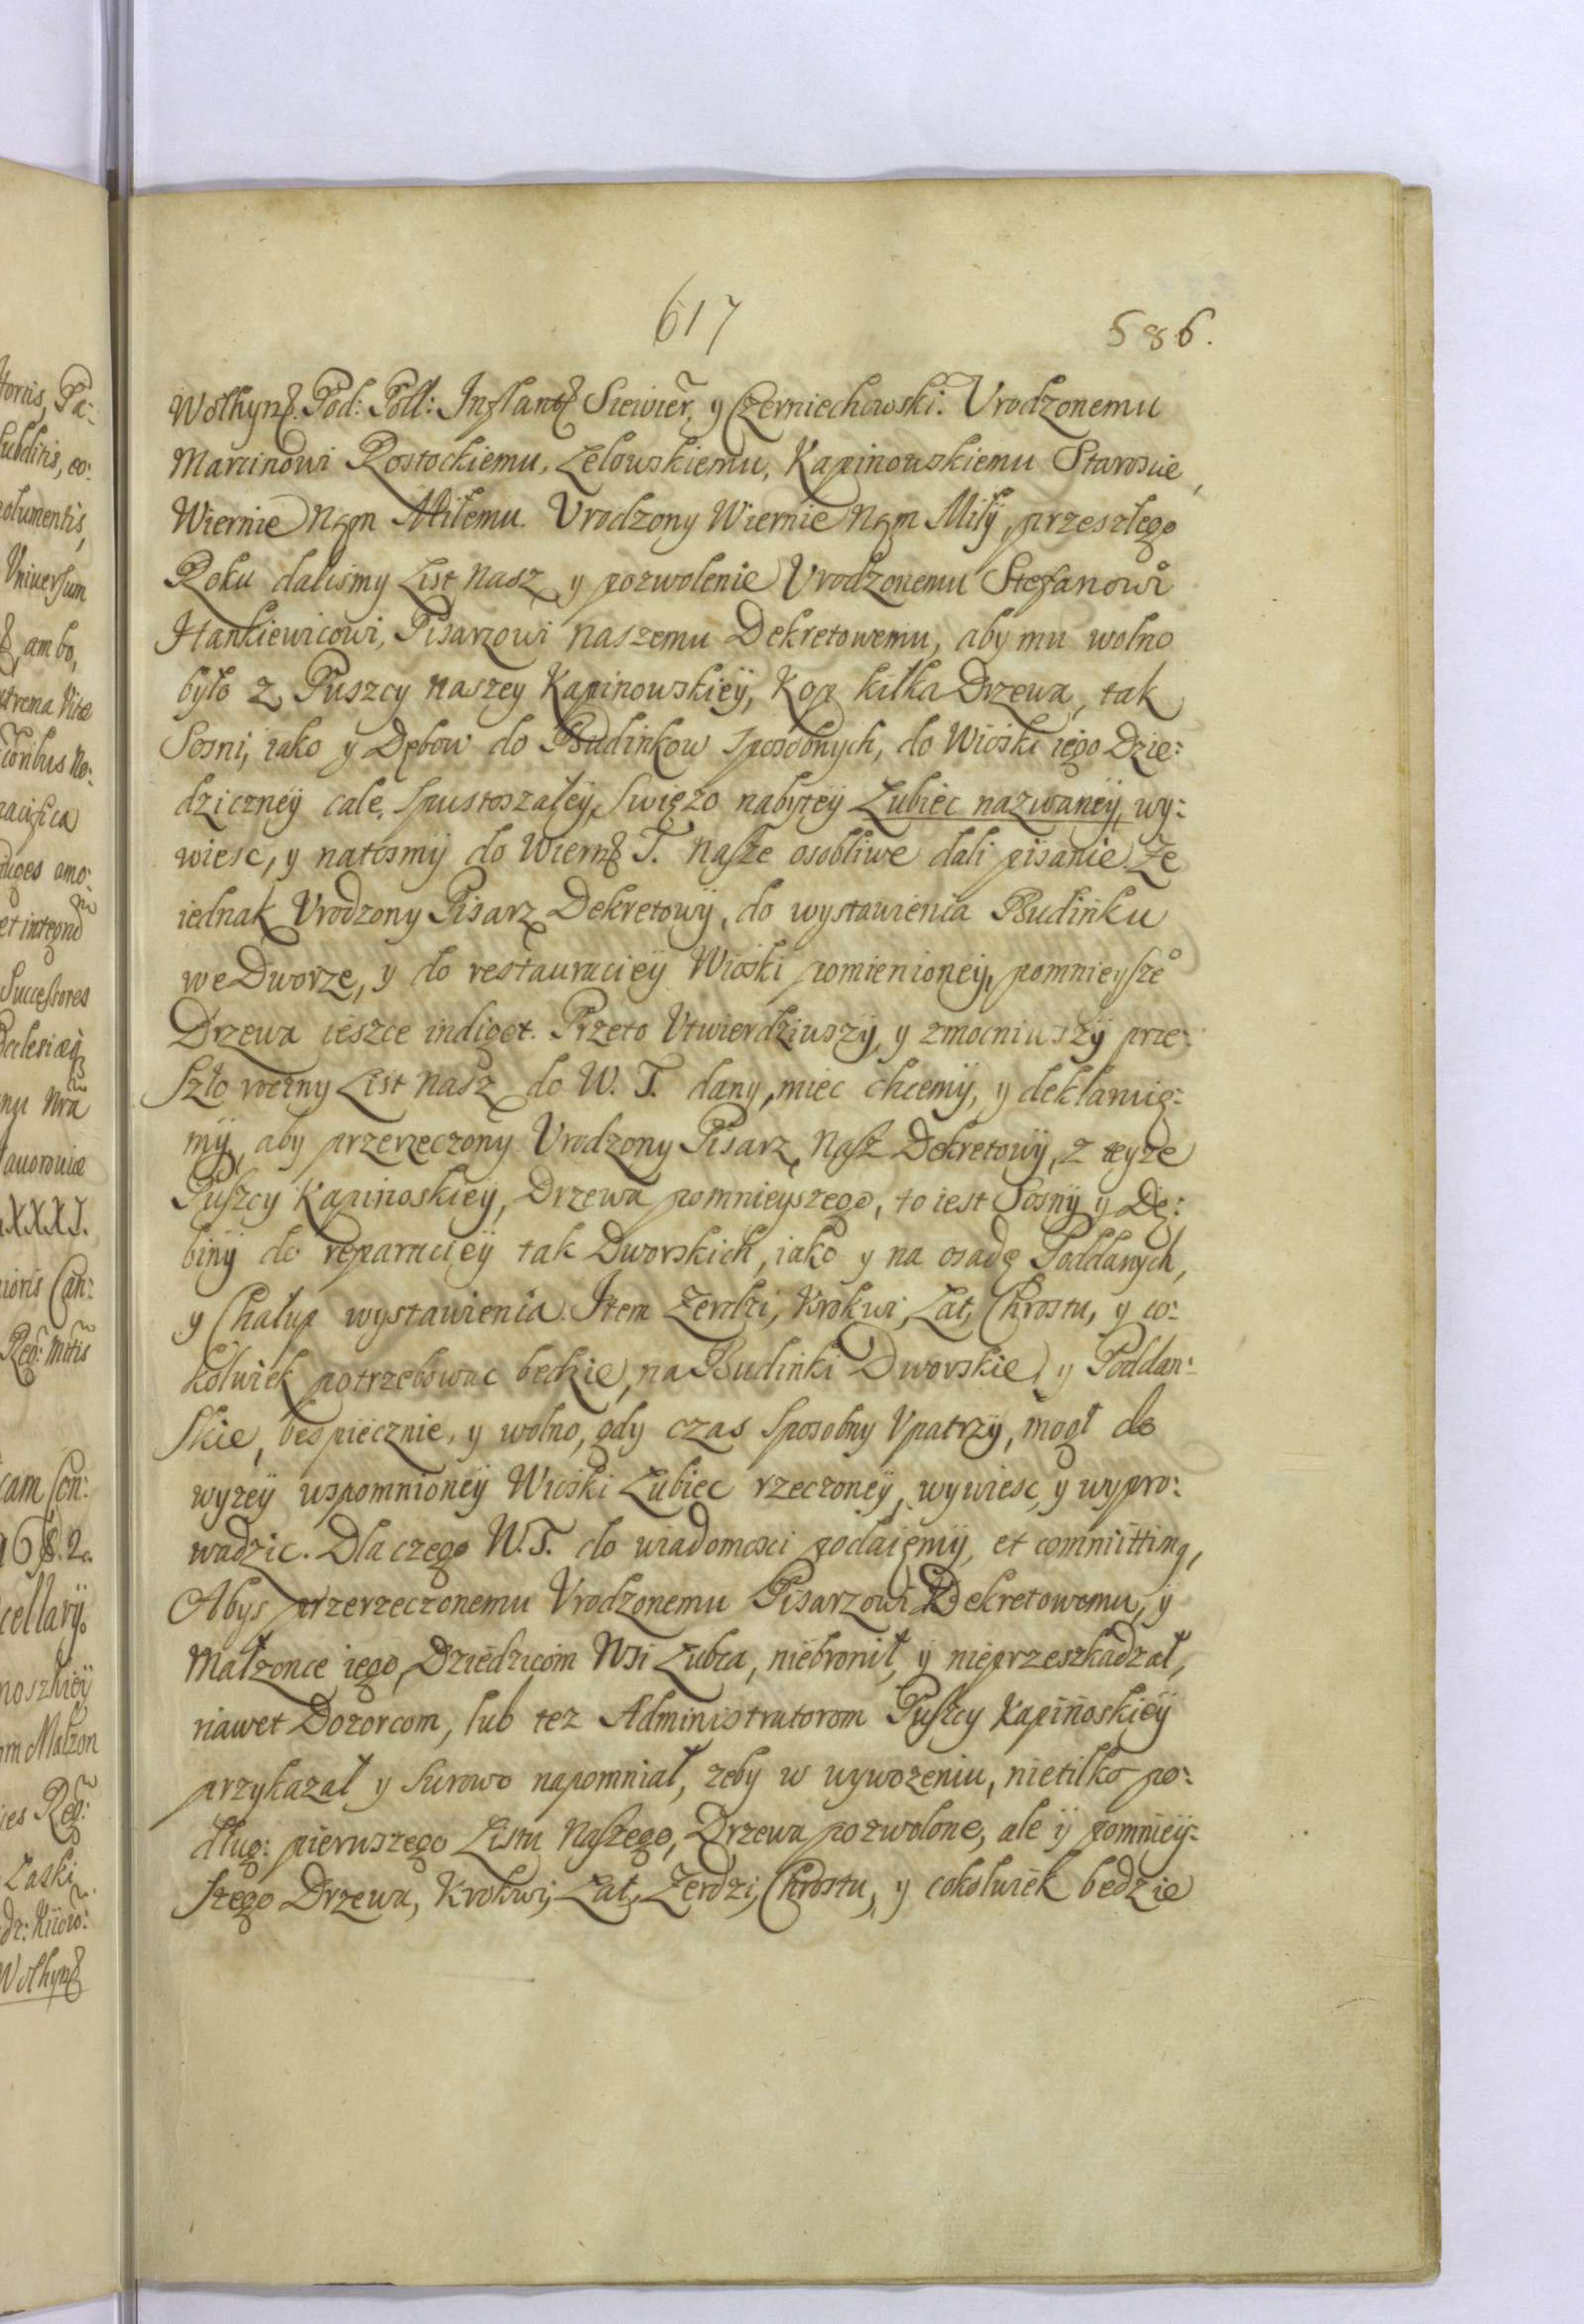 617
586.
Wołhyns. Pod: Podl: Inflants Siewier, y Czerniechowski. Vrodzonemu
Marcinowi Rostockiemu, Zelowskiemu, Kapinowskiemu Staroscie,
Wiernie Nam Miłemu. Vrodzony Wiernie Nam Miły, przeszłego
Roku dalismy List Nasz y pozwolenie Vrodzonemu Stefanowi
Hankiewicowi, Pisarzowi Naszemu Dekretowemu, aby mu wolno
było z Puszcy Naszey Kapinowskiey, Kop kilka Drzewa, tak
Sosni, iako y Dębow do Budinkow sposobnych, do Wioski iego Dzie:
dziczney cale, spustoszałey, swięzo nabytey Lubiec nazwaney, wy:
wiesc, y natosmy do Wierns T. Nasze osobliwe dali pisanie. Ze
iednak Vrodzony Pisarz Dekretowy, do wystawienia Budinku
we Dworze, y do restauraciey Wioski pomienioney, pomnieysze°
Drzewa ieszce indiget. Przeto Vtwierdziwszy, y zmocniwszy prze:
szło roczny List Nasz do W. T. dany, miec chcemy, y deklaruię:
my, aby przerzeczony Vrodzony Pisarz Nasz Dekretowy, z teyze
Puszcy Kapinoskiey, Drzewa pomnieyszego, to iest Sosny y Dę:
biny do reparaciey tak Dworskich, iako y na osadę Poddanych,
y Chałup wystawienia. Item Zerdzi, Krokwi, Łat, Chrostu, y co:
kolwiek potrzebowac bedzie, na Budinki Dworskie, y Poddan:
skie, bespiecznie, y wolno, gdy czas sposobny Vpatrzy, mogł do
wyzey wspomnioney Wioski Lubiec rzeczoney, wywiesc, y wypro:
wadzic. Dla czego W.T. do wiadomosci podaięmy, et committimg,
Abys przerzeczonemu Vrodzonemu Pisarzowi Dekretowemu, y
Małzonce iego, Dziedzicom Wsi Lubca, niebronił, y nieprzeszkadzał,
nawet Dozorcom, lub tez Administratorom Puszcy Kapinoskiey
przykazał y surowo napomniał, zeby w wywozeniu, nietilko po:
dług: pierwszego Listu Naszego, Drzewa pozwolone, ale y pomniey:
szego Drzewa, Krokwi, Łat, Zerdzi, Chrostu, y cokolwiek bedzie